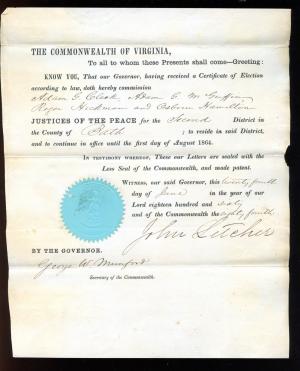 THE COMMONWEALTH OF VIRGINIA,
To all to whom these Presents shall come—Greeting:
KNOW YOU, That our Governor, having received a Certificate of Election
according to law, doth hereby commission
Adam G. Cleek, Adam G. McGuffin
Roger Hickman and Osborn Hamilton
JUSTICES OF THE PEACE for the Second District in
the County of Bath ; to reside in said District,
and to continue in office until the first day of August 1864.
IN TESTIMONY WHEREOF, These our Letters are sealed with the
Less Seal of the Commonwealth, and made patent.
WITNESS, our said Governor, this twenty fourth
day of June in the year of our
Lord eighteen hundred and sixty
and of the Commonwealth the eighty fourth
John Letcher
BY THE GOVERNOR.
George W. Munford
Secretary of the Commonwealth.